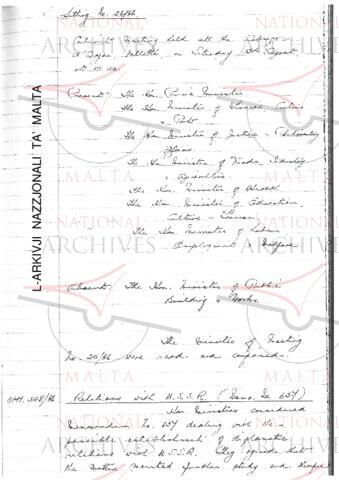 Sitting No. 26/66
Cabinet Meeting held at the
Valletta, on Tuesday August,
at
Present: The Hon. Prime Minister
The Hon. Minister of Finance, Customs
& Port
The Hon. Minister of Justice & Parliamentary
Affairs
The Hon. Minister of Trade, Industry
& Agriculture
The Hon. Minister of Health
The Hon. Minister of Education,
Culture & Tourism
The Hon. Minister of Labour
Employment & Welfare
Absent: The Hon. Minister of Public
Building & Works.
The Minutes of Meeting
No. /66 were read and confirmed.
OPM. 548/66
Relations with U.S.S.R. (Memo. No 637)
Hon. Ministers considered
Memorandum No. 637 dealing with the
possible establishment of diplomatic
relations with U.S.S.R. They agreed that
the matter merited further study and
L-ARKIVJI NAZZJONALI TA' MALTA
NATIONAL
ARCHIVES
MALTA